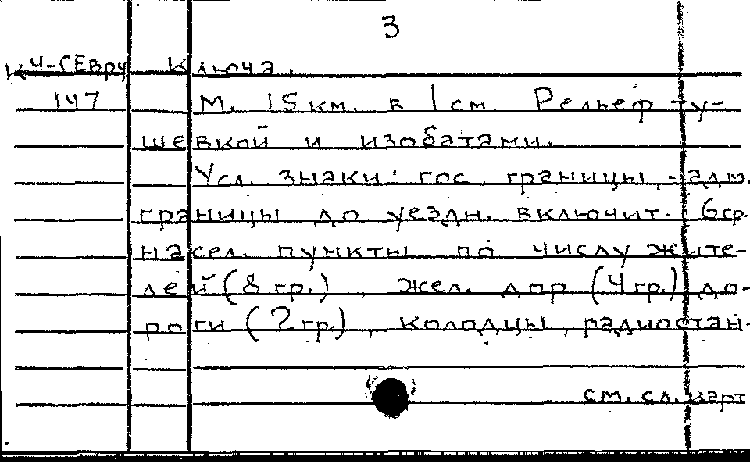 3
КЧ-СЕвру Ключа.
147 М. 15 км. в 1 см. Рельеф ту-
шевкой и изобатами.
Усл. знаки: гос. границы, адм.
границы до уездн. включит. 6 гр.
насел. пункты по числу жите-
лей (8 гр.), жел. дор (4 гр.) до-
роги (2 гр.), колодцы, радиостан-
см. сл. карт